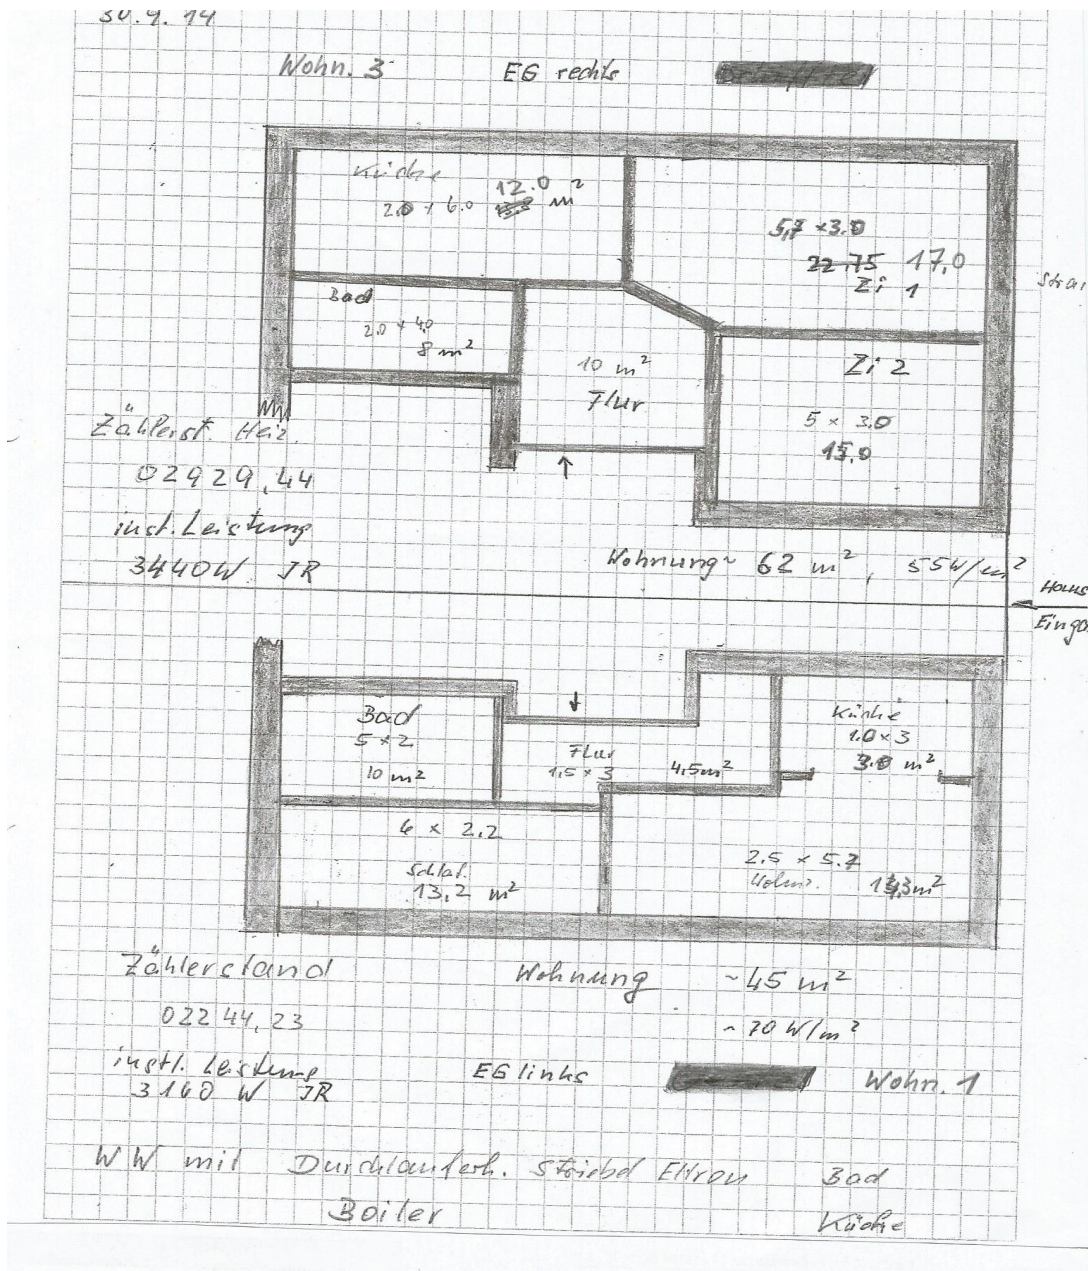 30.9.14
Wohn. 3 EG rechts
Küche
12.0
2.0 x 6.0 m²
5,7 x 3.0
22.75 17,0
Zi 1
Bad
2.0 x 4.0
8 m²
10 m²
Flur
Zi 2
5 x 3.0
15,0
Zählerst. Heiz.
02929,44
inst. Leistung
3440W IR
Wohnung ~ 62 m², 55W/m²
Haus
Einga
Bad
5 x 2
10 m²
Flur
1,5 x 3 4,5m²
Küche
1.0 x 3
3.0 m²
6 x 2.2
Schlaf.
13,2 m²
2.5 x 5.7
Wohnz. m²
Zählerstand
02244,23
Wohnung ~45 m²
~70 W/m²
instl. Leistung
3160 W IR
EG links Wohn. 1
WW mit Durchlauferh. Stiebel Eltron Bad
Boiler Küche